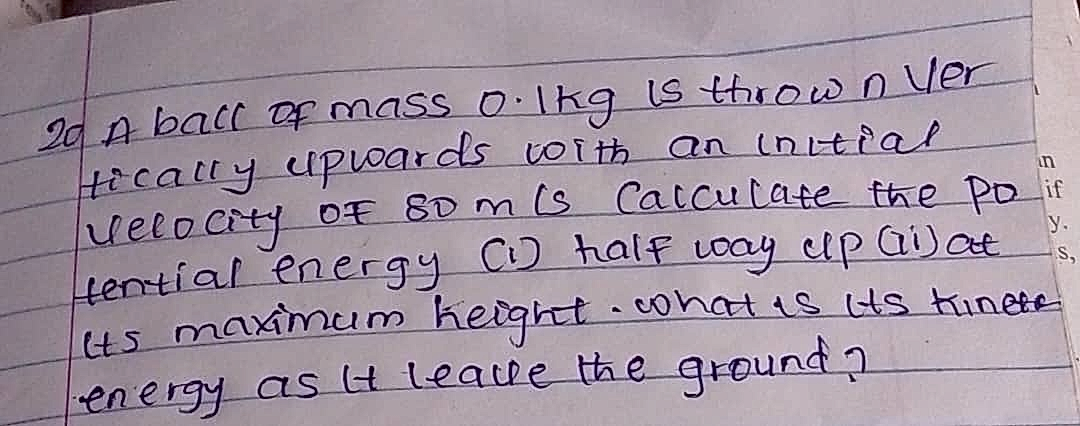 2d A ball of mass 0.1kg is thrown ver
tically upwards with an initial
velocity of 80 m/s Calculate the po
tential energy (i) half way up (ii) at
its maximum height. what is its kinete
energy as it leave the ground?
in
if
y.
s,